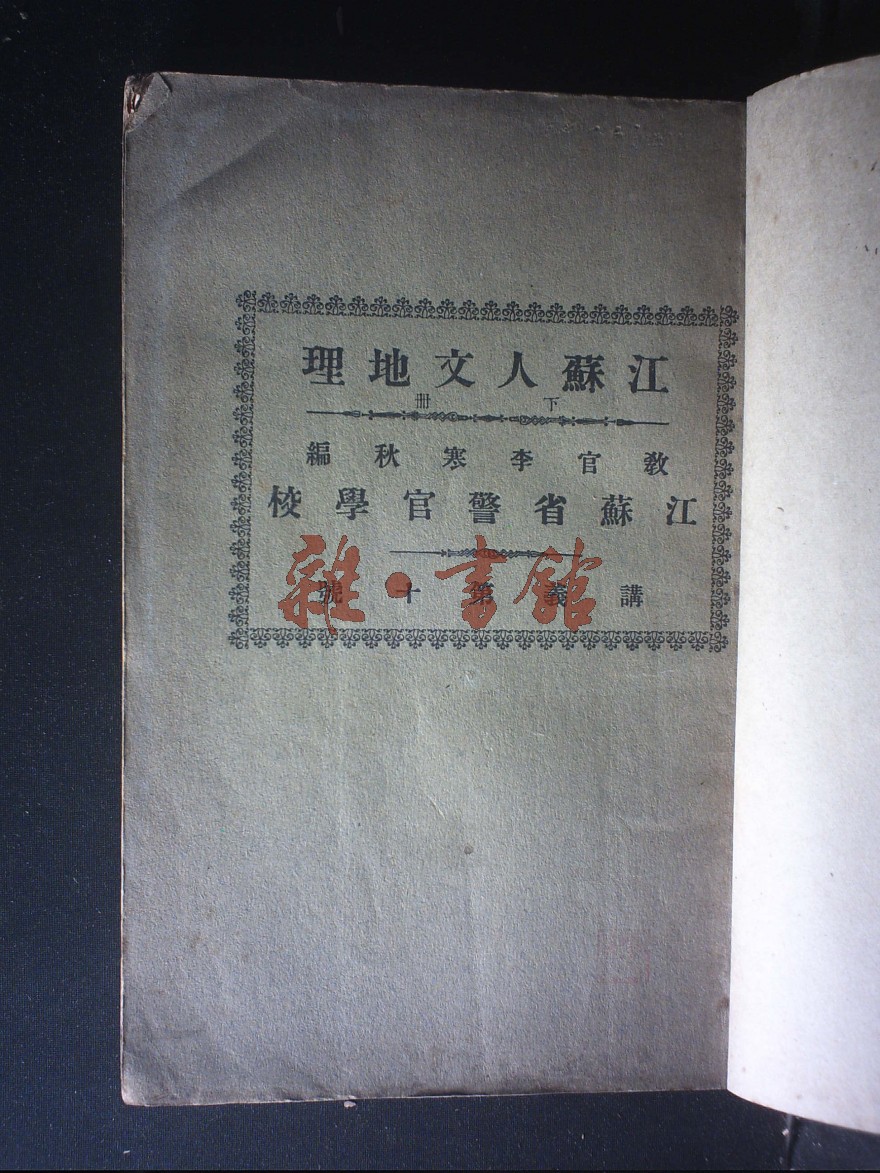 江蘇人文地理
下册
教官李寒秋編
江蘇省警官學校
講義第十號
雜·書館